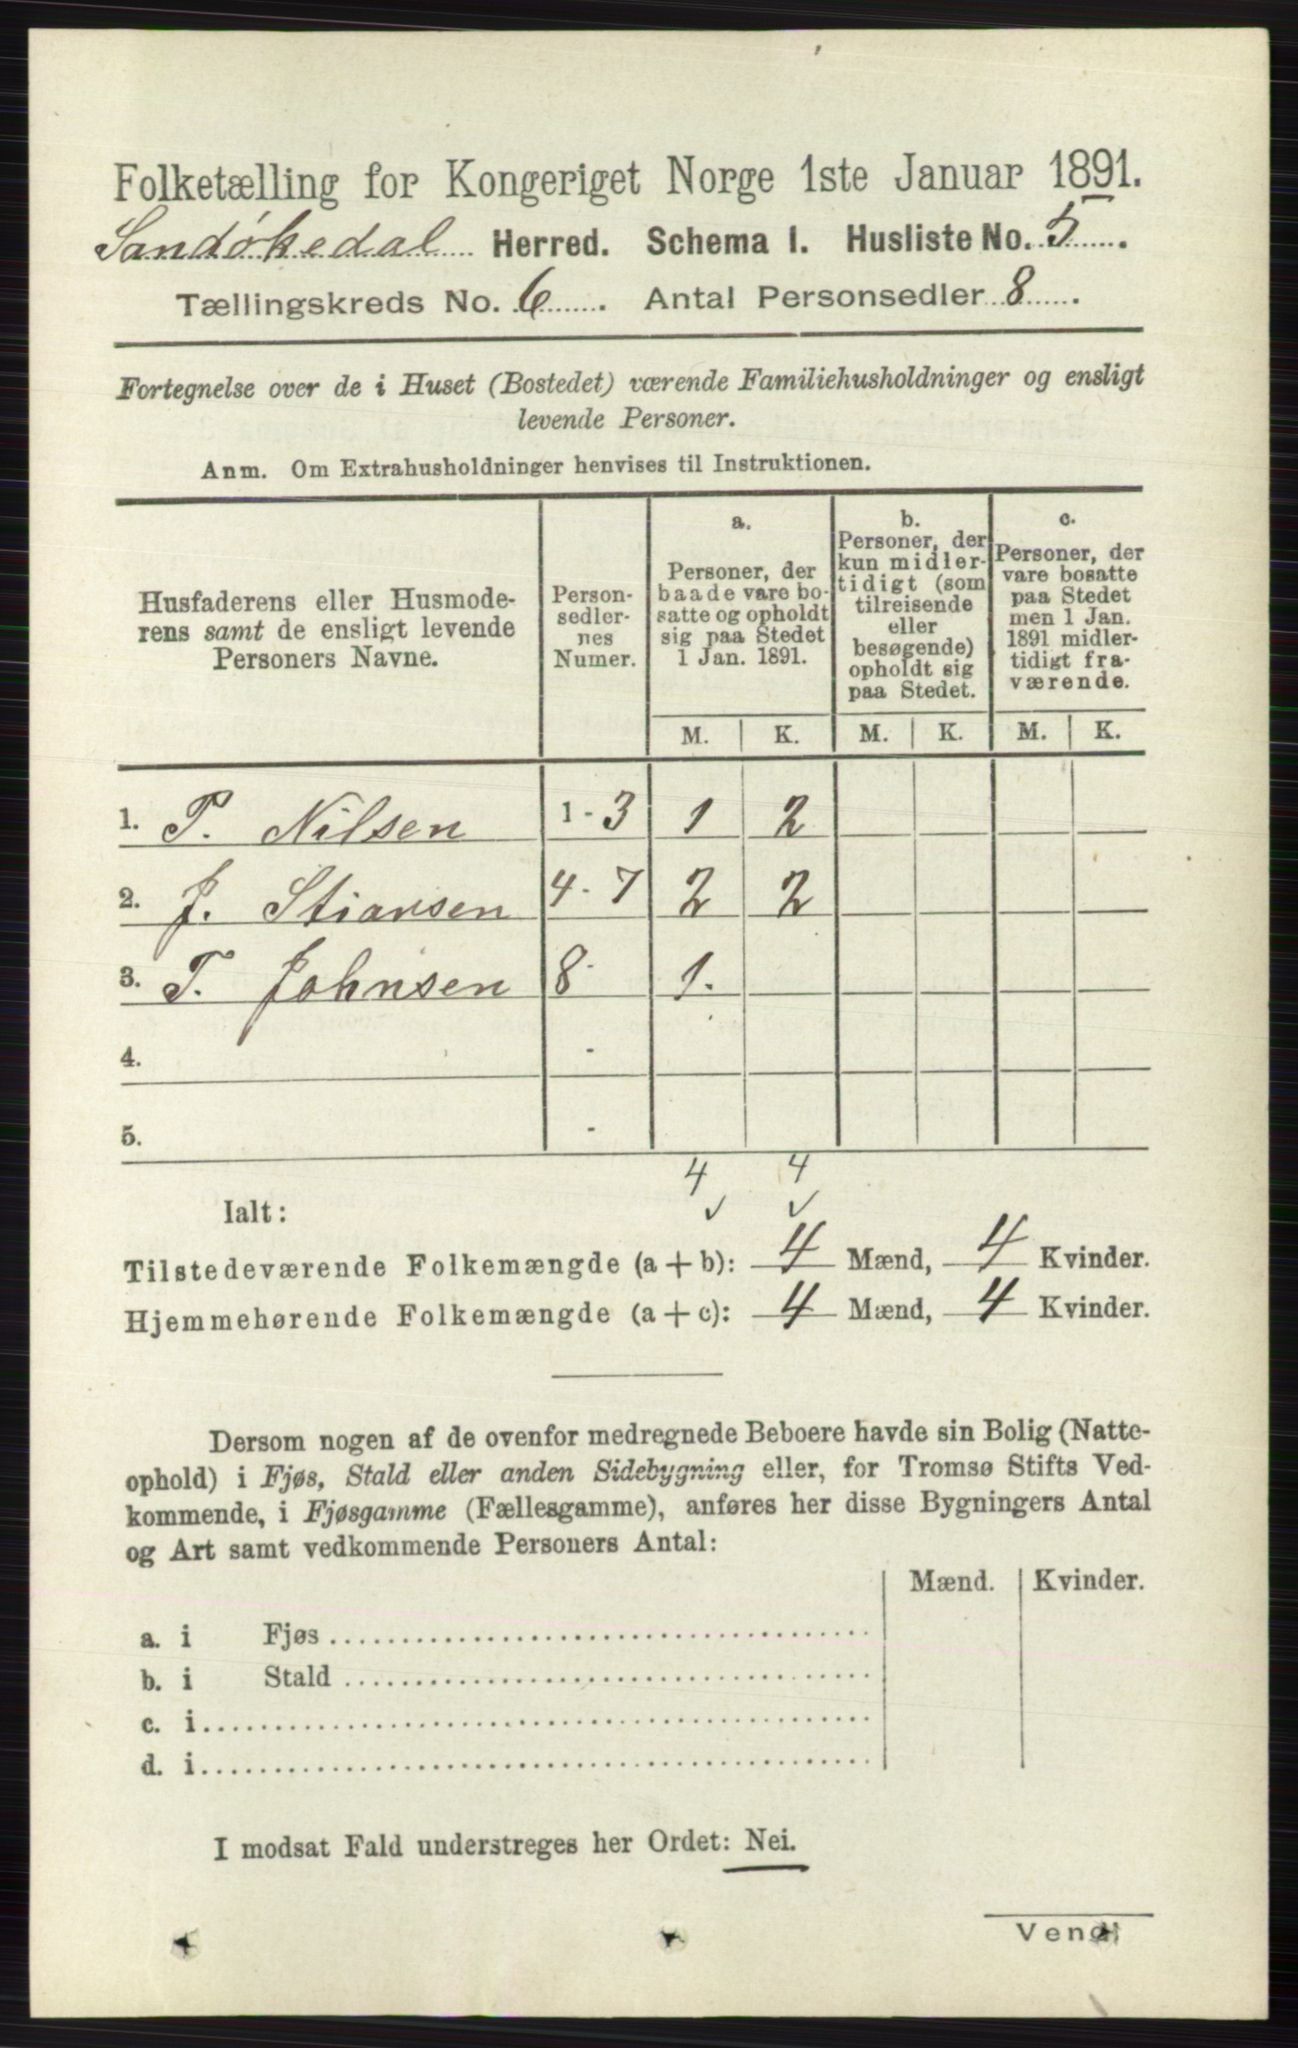 Folketælling for Kongeriget Norge 1ste Januar 1891.
Sandøkedal Herred. Schema I. Husliste No. 5.
Tællingskreds No. 6. Antal Personsedler 8.
Fortegnelse over de i Huset (Bostedet) værende Familiehusholdninger og ensligt
levende Personer.
Anm. Om Extrahusholdninger henvises til Instruktionen.
Husfaderens eller Husmode-
rens samt de ensligt levende
Personers Navne.
Person-
sedler-
nes
Numer.
a.
Personer, der
baade vare bo-
satte og opholdt
sig paa Stedet
1 Jan. 1891.
b.
Personer, der
kun midler-
tidigt (som
tilreisende
eller
besøgende)
opholdt sig
paa Stedet.
c.
Personer, der
vare bosatte
paa Stedet
men 1 Jan.
1891 midler-
tidigt fra-
værende.
M. K. M. K. M. K.
1. P. Nilsen 1 - 3 1 2
2. J. Stiansen 4 - 7 2 2
3. T. Johnsen 8 - 1.
4. -
5. -
4 4
Ialt:
Tilstedeværende Folkemængde (a + b): 4 Mænd, 4 Kvinder.
Hjemmehørende Folkemængde (a + c): 4 Mænd, 4 Kvinder.
Dersom nogen af de ovenfor medregnede Beboere havde sin Bolig (Natte-
ophold) i Fjøs, Stald eller anden Sidebygning eller, for Tromsø Stifts Ved-
kommende, i Fjøsgamme (Fællesgamme), anføres her disse Bygningers Antal
og Art samt vedkommende Personers Antal:
Mænd. Kvinder.
a. i Fjøs
b. i Stald
c. i
d. i
I modsat Fald understreges her Ordet: Nei.
Vend!